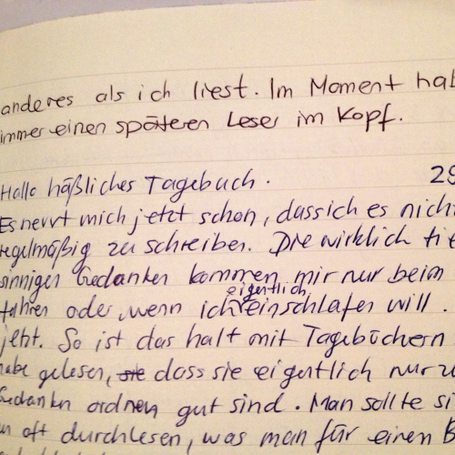 anderes als ich liest. Im Moment hab
immer einen späteren Leser im Kopf.
Hallo häßliches Tagebuch. 29
Es nervt mich jetzt schon, dass ich es nicht
regelmäßig zu schreiben. Die wirklich tie
sinnigen Gedanken kommen mir nur beim
eigentlich
fahren oder, wenn ich einschlafen will.
jetzt. So ist das halt mit Tagebüchern
habe gelesen, sie dass sie eigentlich nur zu
Gedankn ordnen gut sind. Man sollte si
n oft durchlesen, was man für einen B